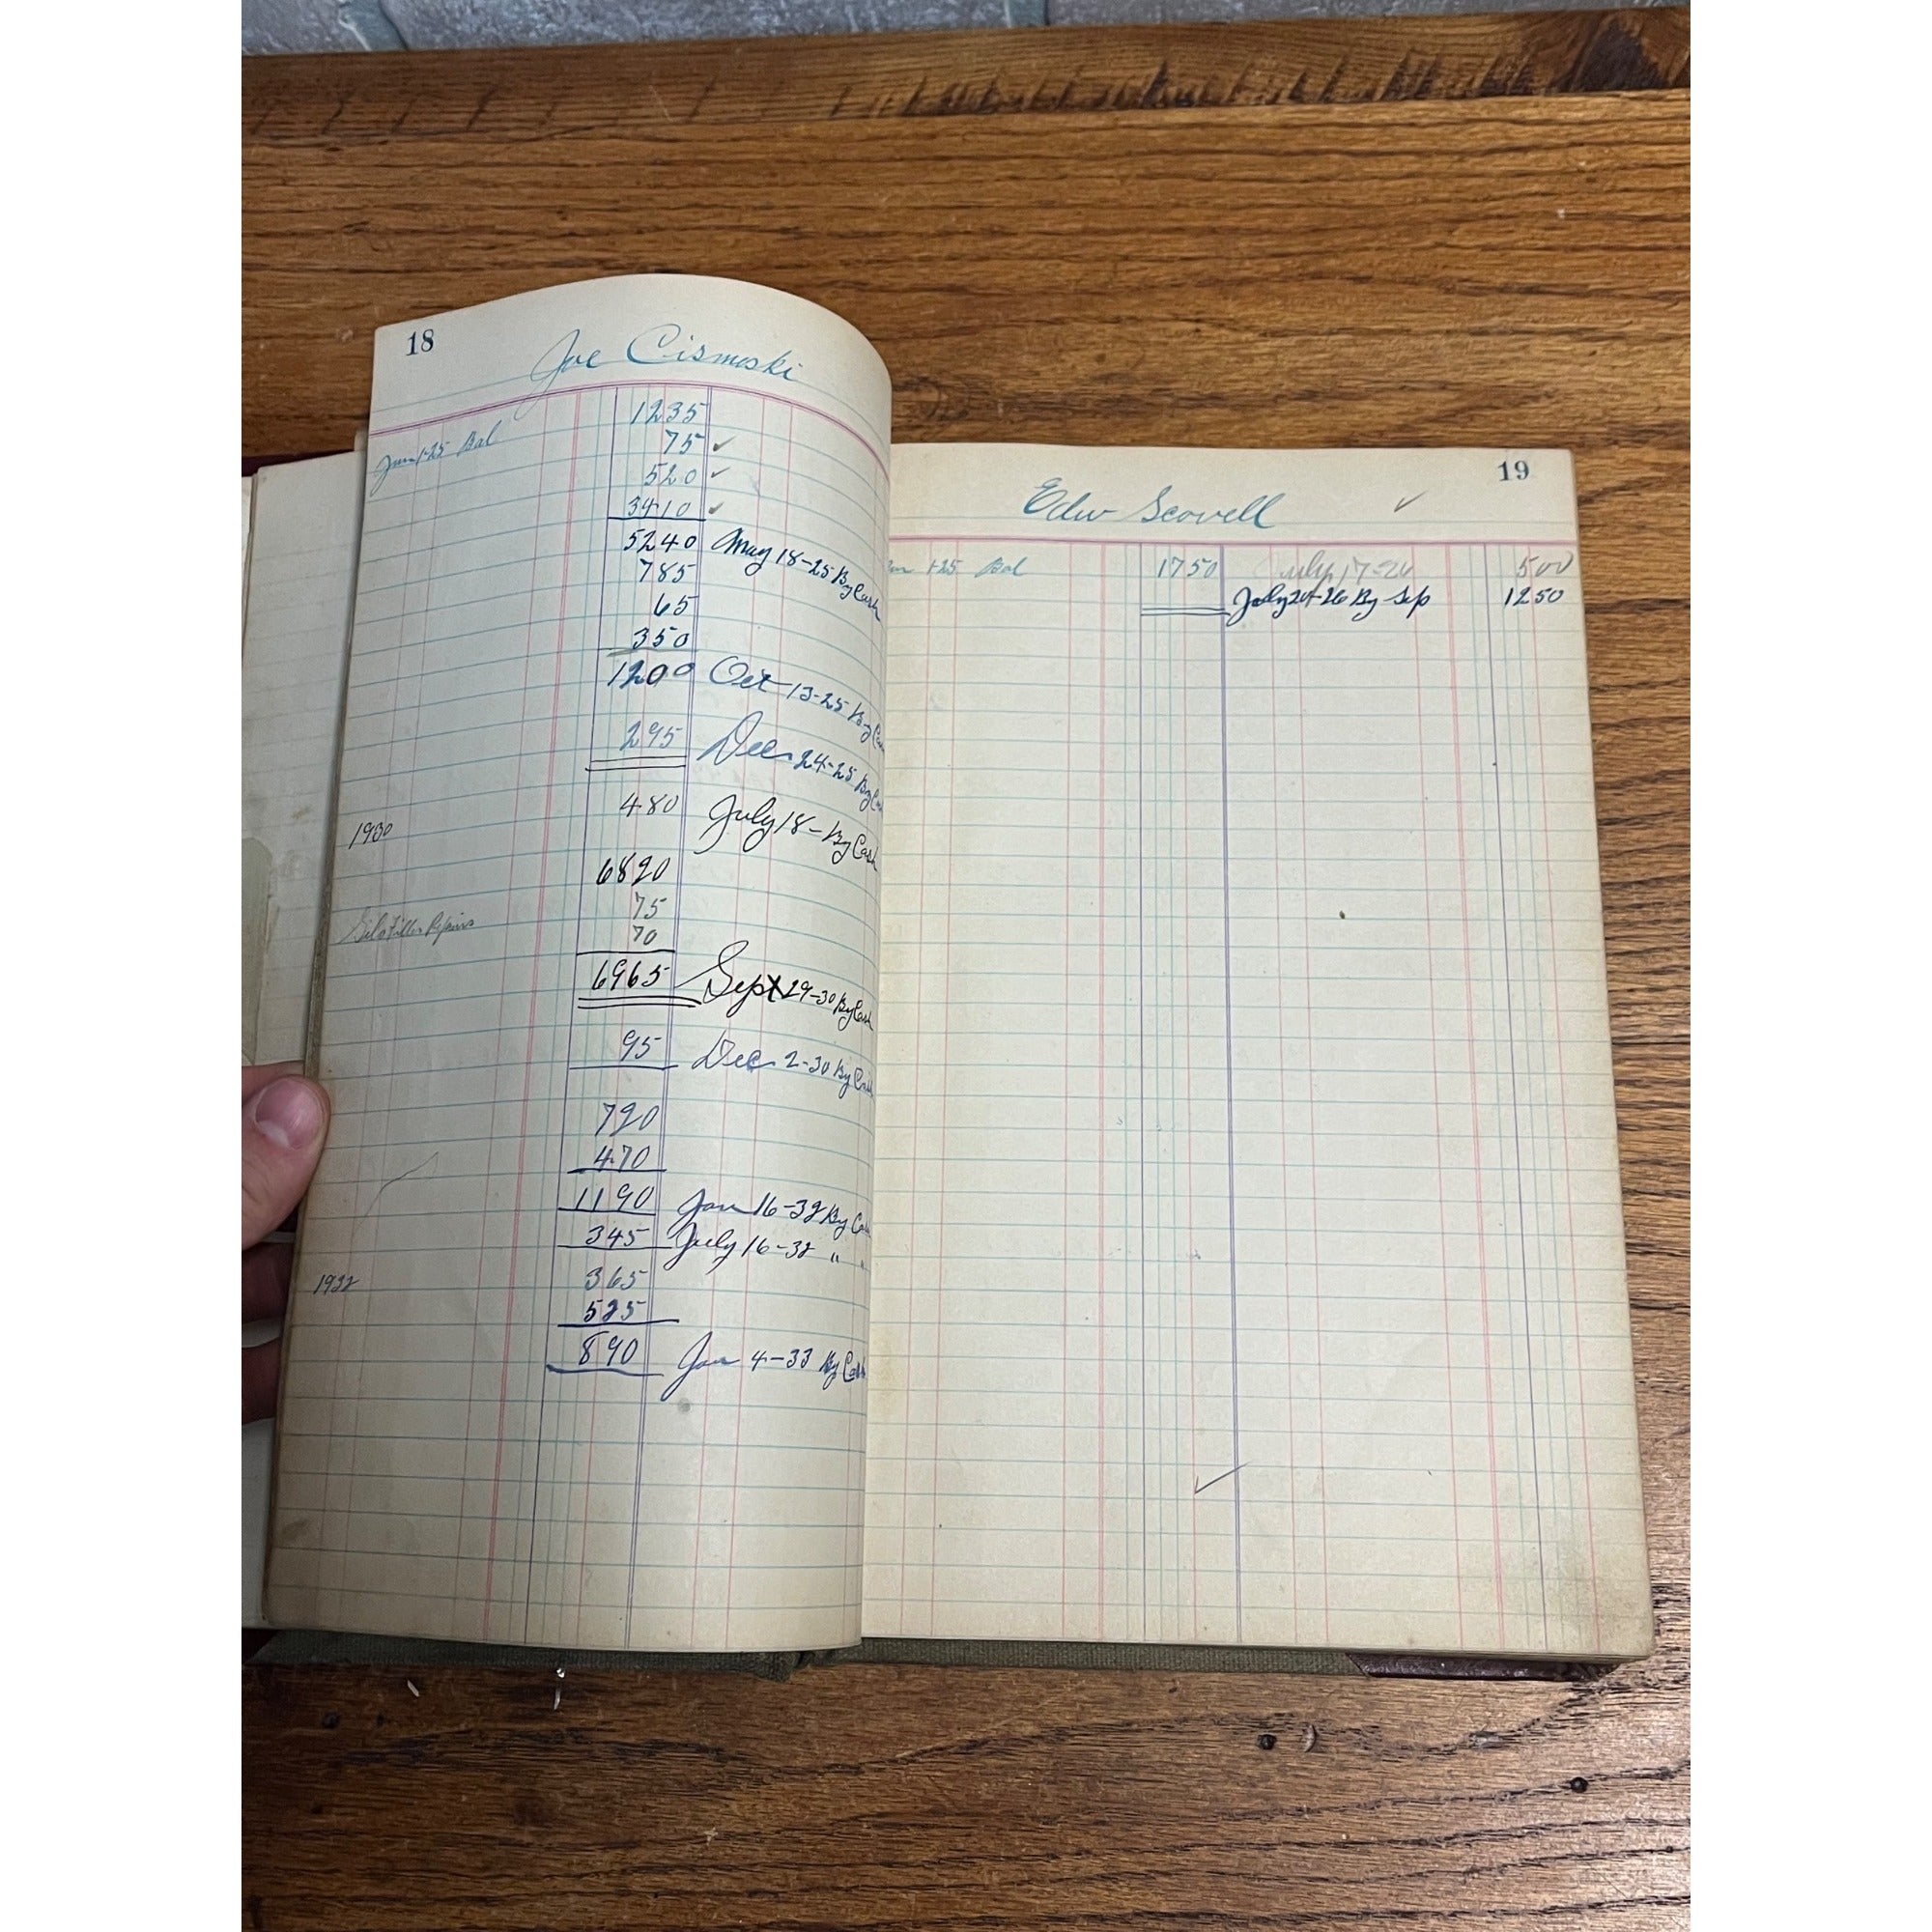 18
Joe Cismoski
1235
Jan 1-25 Bal 75 ✓
520 ✓
3410 ✓
5240 May 18-25 By Cash
785
65
350
1200 Oct 13-25 By Cas
295 Dec 24-25 By Ca
480 July 18- By Cash
1930
6820
75
Silo Filler Repairs 70
6965 Sept 29-30 By Cash
95 Dec 2-30 By Cas
720
470
1190 Jan 16-32 By Cas
345 July 16-32 " "
1932 365
525
890 Jan 4-33 By Cash
19
Edw Scovell ✓
Jan 1-25 Bal 1750 July 17-26 500
July 24-26 By Sep 1250